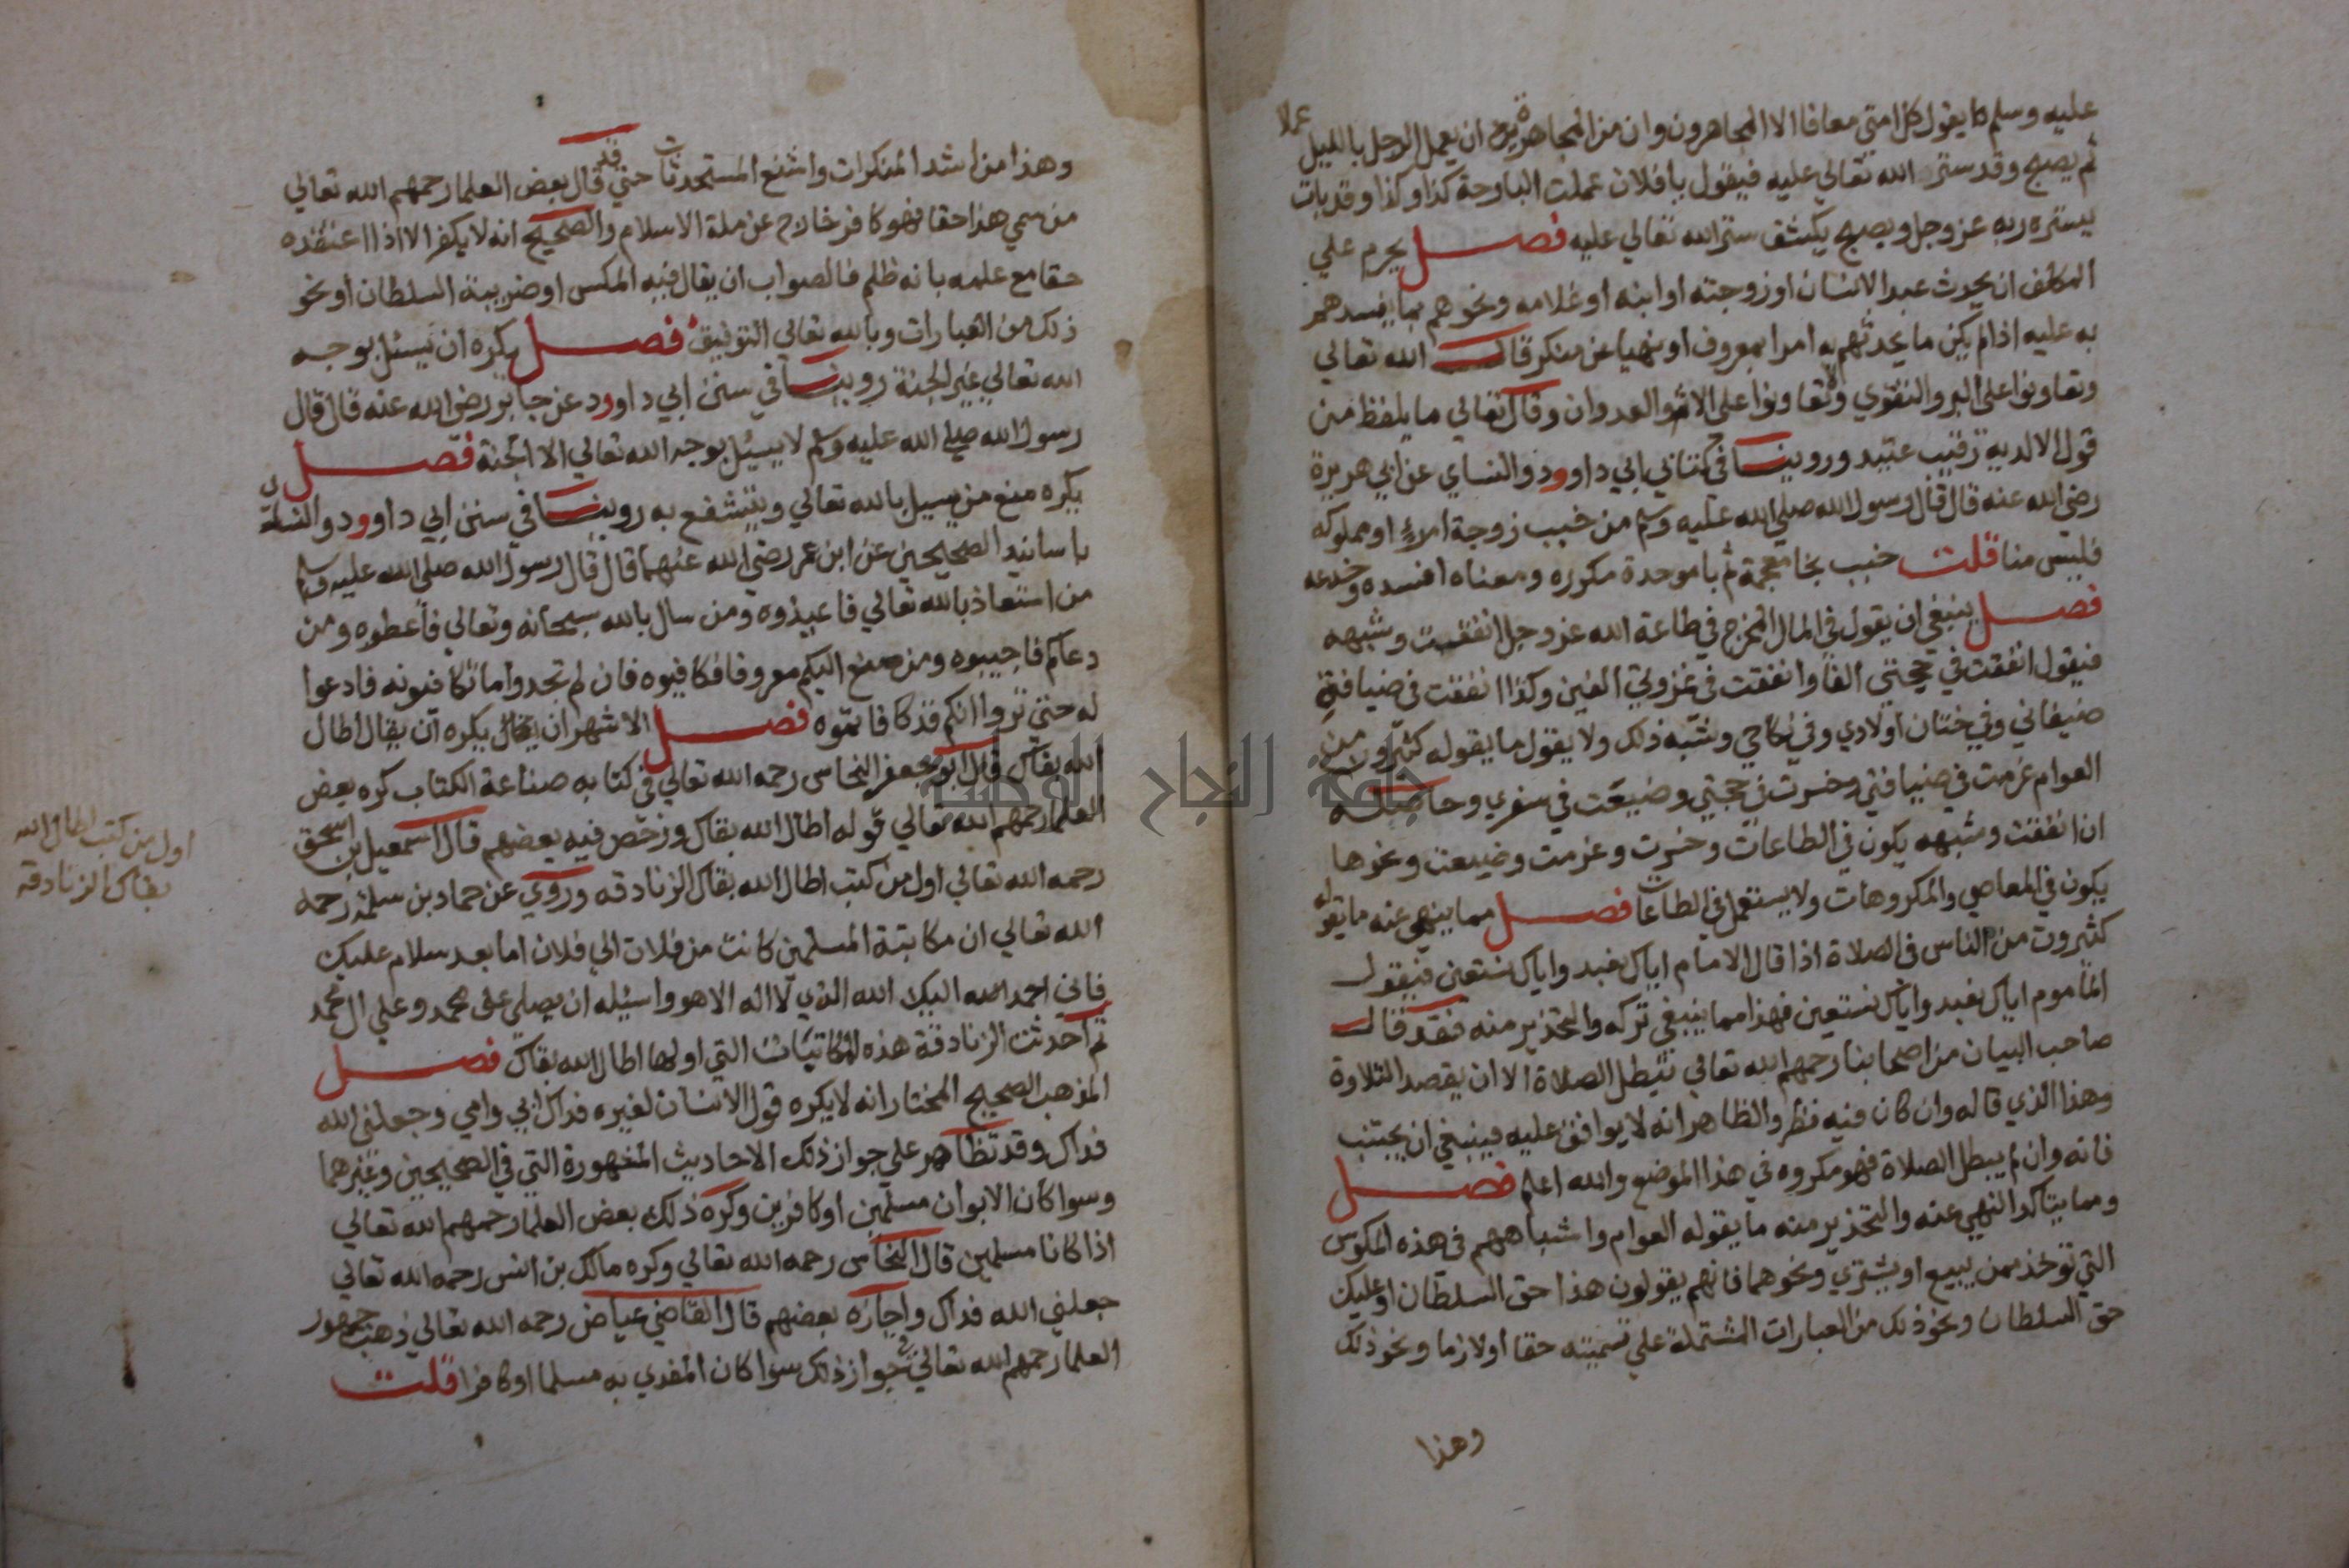 عليه وسلم كا يقول كل امتي معافا الا المجاهرون وان من المجاهرة ان يعمل الرجل بالليل عملا
ثم يصبح وقد ستره الله تعالي عليه فيقول يا فلان عملت البارحة كذا وكذا وقد بات
يستره ربه عز وجل ويصبح يكشف ستر الله تعالي عليه فصل يحرم علي
المكلف ان يحدث عبد الانسان او زوجته او ابنه او غلامه ونحوهم بما يفسدهم
به عليه اذا لم يكن ما يحدثهم به امرا بمعروف او نهيا عن منكر قال الله تعالي
وتعاونوا علي البر والتقوي ولا تعاونوا علي الاثم والعدوان وقال تعالي ما يلفظ من
قول الا لديه رقيب عتيد وروينا في كتابي ابي داوود والنساي عن ابي هريرة
رضي الله عنه قال قال رسول الله صلي الله عليه وسلم من خبب زوجة امرء او مملوكه
فليس منا قلت خبب بخا معجمة ثم با موحدة مكرره ومعناه افسده وخدعه
فصل ينبغي ان يقول في المال المخرج في طاعة الله عز وجل انفقت وشبهه
فيقول انفقت في حجتي الفا وانفقت في غزوتي الفين وكذا انفقت في ضيافة
ضيفاني وفي ختان اولادي وفي نكاحي وشبه ذلك ولا يقول ما يقوله كثيرون من
العوام غرمت في ضيافتي وخسرت في حجتي وضيعت في سفري وحاصله
ان انفقت وشبهه يكون في الطاعات وخسرت وغرمت وضيعت ونحوها
يكون في المعاصي والمكروهات ولا يستعمل في الطاعات فصل مما ينهي عنه ما يقوله
كثيرون من الناس في الصلاة اذا قال الامام اياك نعبد واياك نستعين فيقول
الماموم اياك نعبد واياك نستعين فهذا مما ينبغي تركه والتحذير منه فقد قال
صاحب البيان من اصحابنا رحمهم الله تعالي تبطل الصلاة الا ان يقصد التلاوة
وهذا الذي قاله وان كان فيه نظر والظاهر انه لا يوافق عليه فينبغي ان يجتنب
فانه وان لم يبطل الصلاة فهو مكروه في هذا الموضع والله اعلم فصل
ومما يتاكد النهي عنه والتحذير منه ما يقوله العوام واشباههم في هذه المكوس
التي توخذ ممن يبيع او يشتري ونحوهما فانهم يقولون هذا حق السلطان او عليك
حق السلطان ونحو ذلك من العبارات المشتملة علي تسميته حقا او لازما ونحو ذلك
وهذا
وهذا من اشد المنكرات واشنع المستحدثات حتي قد قال بعض العلما رحمهم الله تعالي
من سمي هذا حقا فهو كافر خارج عن ملة الاسلام والصحيح انه لا يكفر الا اذا اعتقده
حقا مع علمه بانه ظلم فالصواب ان يقال فيه المكس او ضريبة السلطان او نحو
ذلك من العبارات وبالله تعالي التوفيق فصل يكره ان يسئل بوجه
الله تعالي غير الجنة روينا في سنن ابي داوود عن جابر رضي الله عنه قال قال
رسول الله صلي الله عليه وسلم لا يسئل بوجه الله تعالي الا الجنة فصل
يكره منع من يسيل بالله تعالي ويتشفع به روينا في سنن ابي داوود والنساي
باسانيد الصحيحين عن ابن عمر رضي الله عنهما قال قال رسول الله صلي الله عليه وسلم
من استعاذ بالله تعالي فاعيذوه ومن سال بالله سبحانه وتعالي فاعطوه ومن
دعاكم فاجيبوه ومن صنع اليكم معروفا فكافيوه فان لم تجدوا ما تكافونه فادعوا
له حتي تروا انكم قد كافاتموه فصل الاشهر ان يكره ان يقال اطال
الله بقاك قال ابو جعفر النحاس رحمه الله تعالي في كتابه صناعة الكتاب كره بعض
العلما رحمهم الله تعالي قوله اطال الله بقاك ورخص فيه بعضهم قال اسمعيل بن اسحق
رحمه الله تعالي اول من كتب اطال الله بقاك الزنادقه وروي عن حماد بن سلمة رحمه
الله تعالي ان مكاتبة المسلمين كانت من فلان الي فلان اما بعد سلام عليك
فاني احمد الله اليك الله الذي لا اله الا هو واسئله ان يصلي علي محمد وعلي ال محمد
ثم احدثت الزنادقة هذه المكاتبات التي اولها اطال الله بقاك فصل
المذهب الصحيح المختار انه لا يكره قول الانسان لغيره فداك ابي وامي وجعلني الله
فداك وقد تظاهر علي جواز ذلك الاحاديث المشهورة التي في الصحيحين وغيرهما
وسوا كان الابوان مسلمين او كافرين وكره ذلك بعض العلما رحمهم الله تعالي
اذا كانا مسلمين قال النحاس رحمه الله تعالي وكره مالك بن انس رحمه الله تعالي
جعلني الله فداك واجازه بعضهم قال القاضي عياض رحمه الله تعالي ذهب جمهور
العلما رحمهم الله تعالي جواز ذلك سوا كان المفدي به مسلما او كافرا قلت
اول من كتب اطال الله
بقاك الزنادقه
جامعة النجاح الوطنية